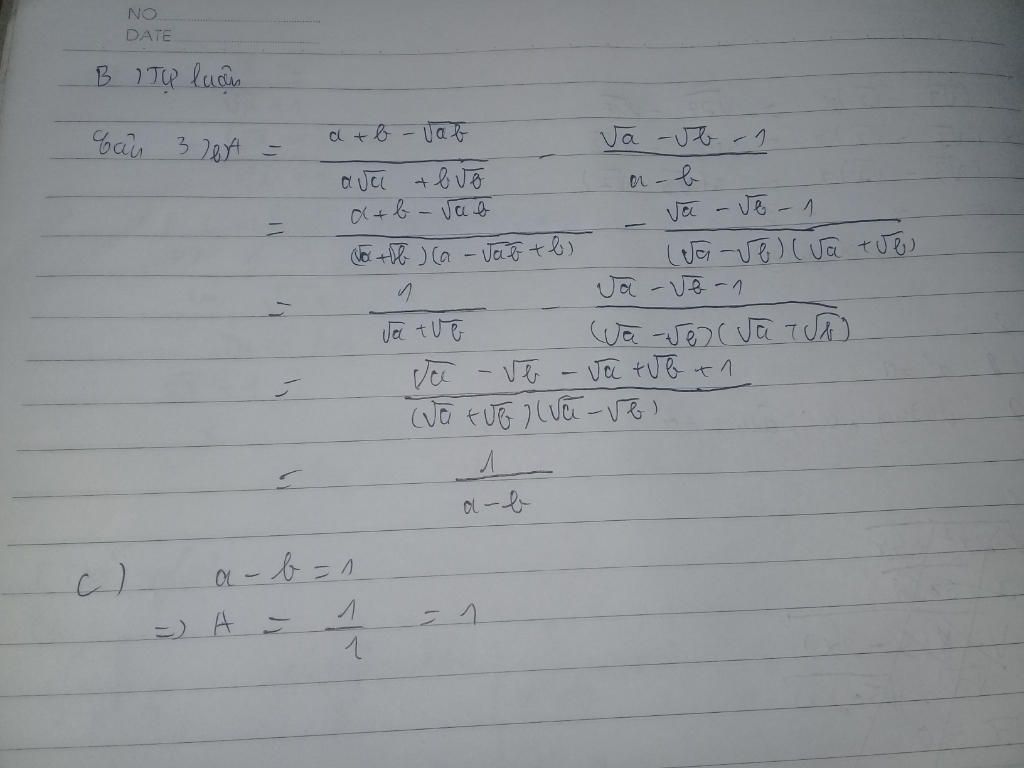 NO
DATE
B) Tự luận
Bài 3) b) A = (a + b - √ab)/(a√a + b√b) - (√a - √b - 1)/(a - b)
= (a + b - √ab)/((√a + √b)(a - √ab + b)) - (√a - √b - 1)/((√a - √b)(√a + √b))
= 1/(√a + √b) - (√a - √b - 1)/((√a - √b)(√a + √b))
= (√a - √b - √a + √b + 1)/((√a + √b)(√a - √b))
= 1/(a - b)
c) a - b = 1
=> A = 1/1 = 1